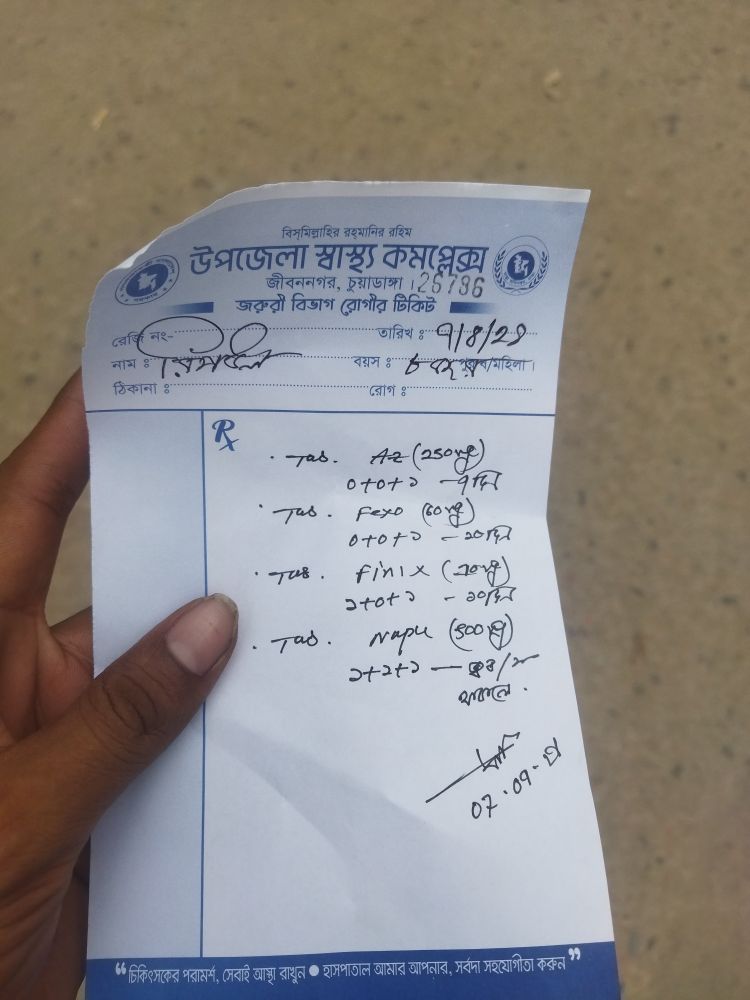 বিসমিল্লাহির রহমানির রহিম
উপজেলা স্বাস্থ্য কমপ্লেক্স
জীবননগর, চুয়াডাঙ্গা। 26786
জরুরী বিভাগ রোগীর টিকিট
রেজি নং- তারিখ :
নাম : বয়স : ৮ বছর পুরুষ/মহিলা।
ঠিকানা : রোগ :
Rx
Tab. Az (250mg)
০+০+১ — ৭ দিন
Tab. Fexo (60mg)
০+০+১ — ২০ দিন
Tab. Finix (20mg)
১+০+১ — ১০ দিন
Tab. Napa (500mg)
১+১+১ —
থাকলে.
“চিকিৎসকের পরামর্শ, সেবাই আস্থা রাখুন ● হাসপাতাল আমার আপনার, সর্বদা সহযোগীতা করুন”